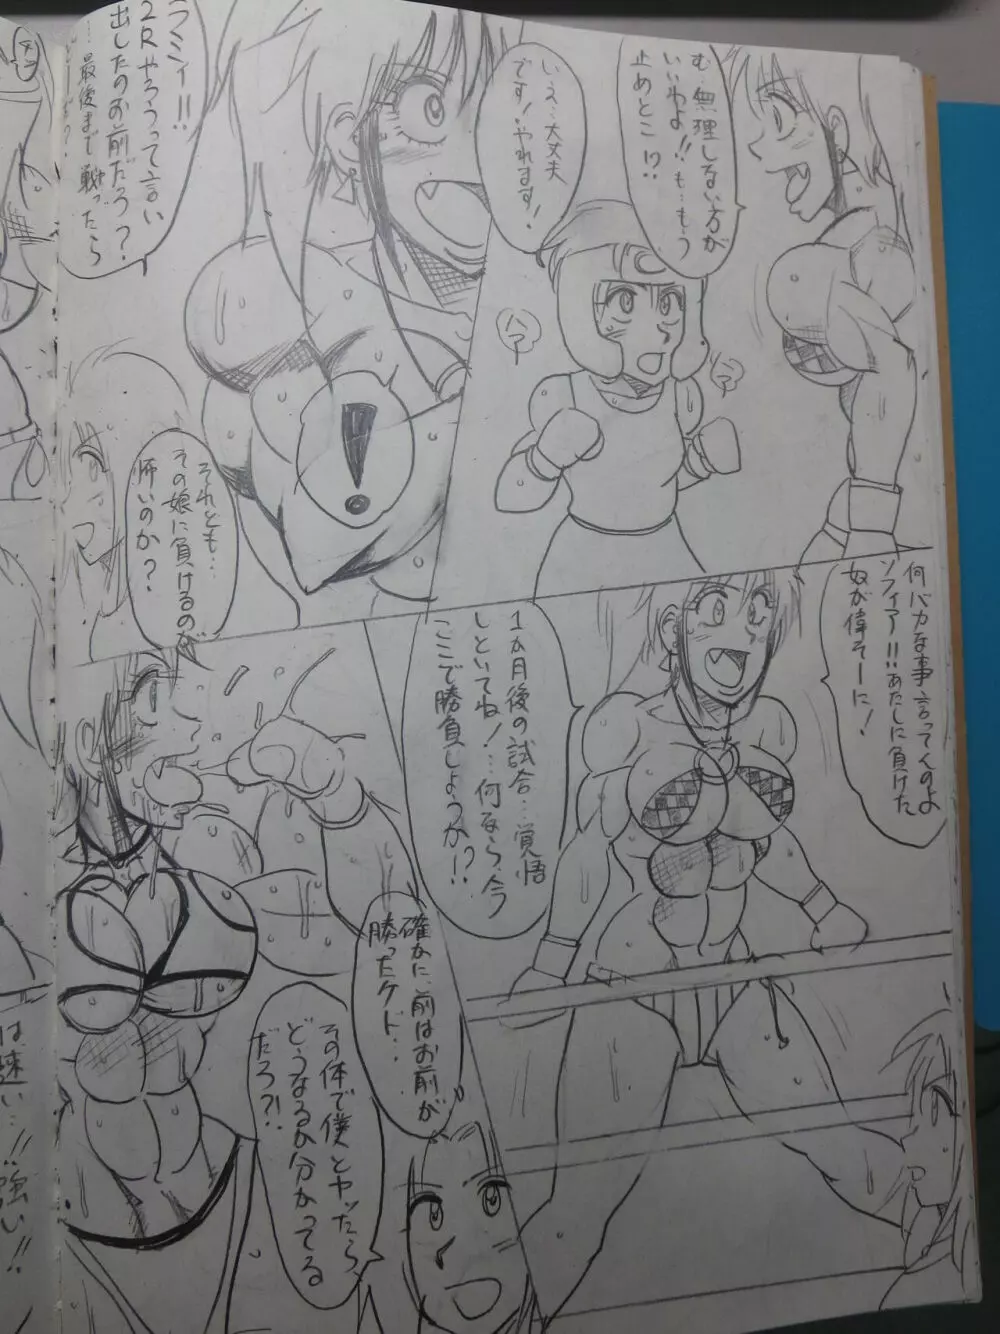 む…無理しない方が
いいわよ!!も…もう
止めとこ!?
いえ…大丈夫
です!やれます!
ハァ
ラミィ!!
2Rやろうって言い
出したのお前だろう?
…最後まで戦ったら
それとも…
その娘に負けるのが
怖いのか?
何バカな事言ってんのよ
ソフィア!!!あたしに負けた
奴が偉そーに!
1カ月後の試合…覚悟
しといてね!…何なら今
ここで勝負しようか!?
確かに前はお前が
勝ったケド…
その体で僕とヤッたら
どうなるか分かってる
だろ?!
は速い…!!強い!!